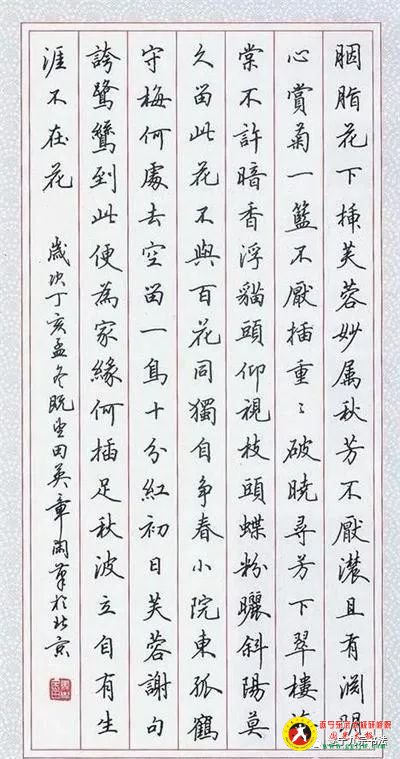 胭脂花下插芙蓉妙属秋芳不厭濃且有淵明
心賞菊一籃不厭插重〻破曉尋芳下翠樓
棠不許暗香浮貓頭仰視枝頭蝶粉曬斜陽莫
久留此花不與百花同獨自争春小院東孤鶴
守梅何處去空留一鳥十分紅初日芙蓉謝句
誇鷺鷥到此便為家緣何插足秋波立自有生
涯不在花
歲次丁亥孟冬既望田英章開筆於北京